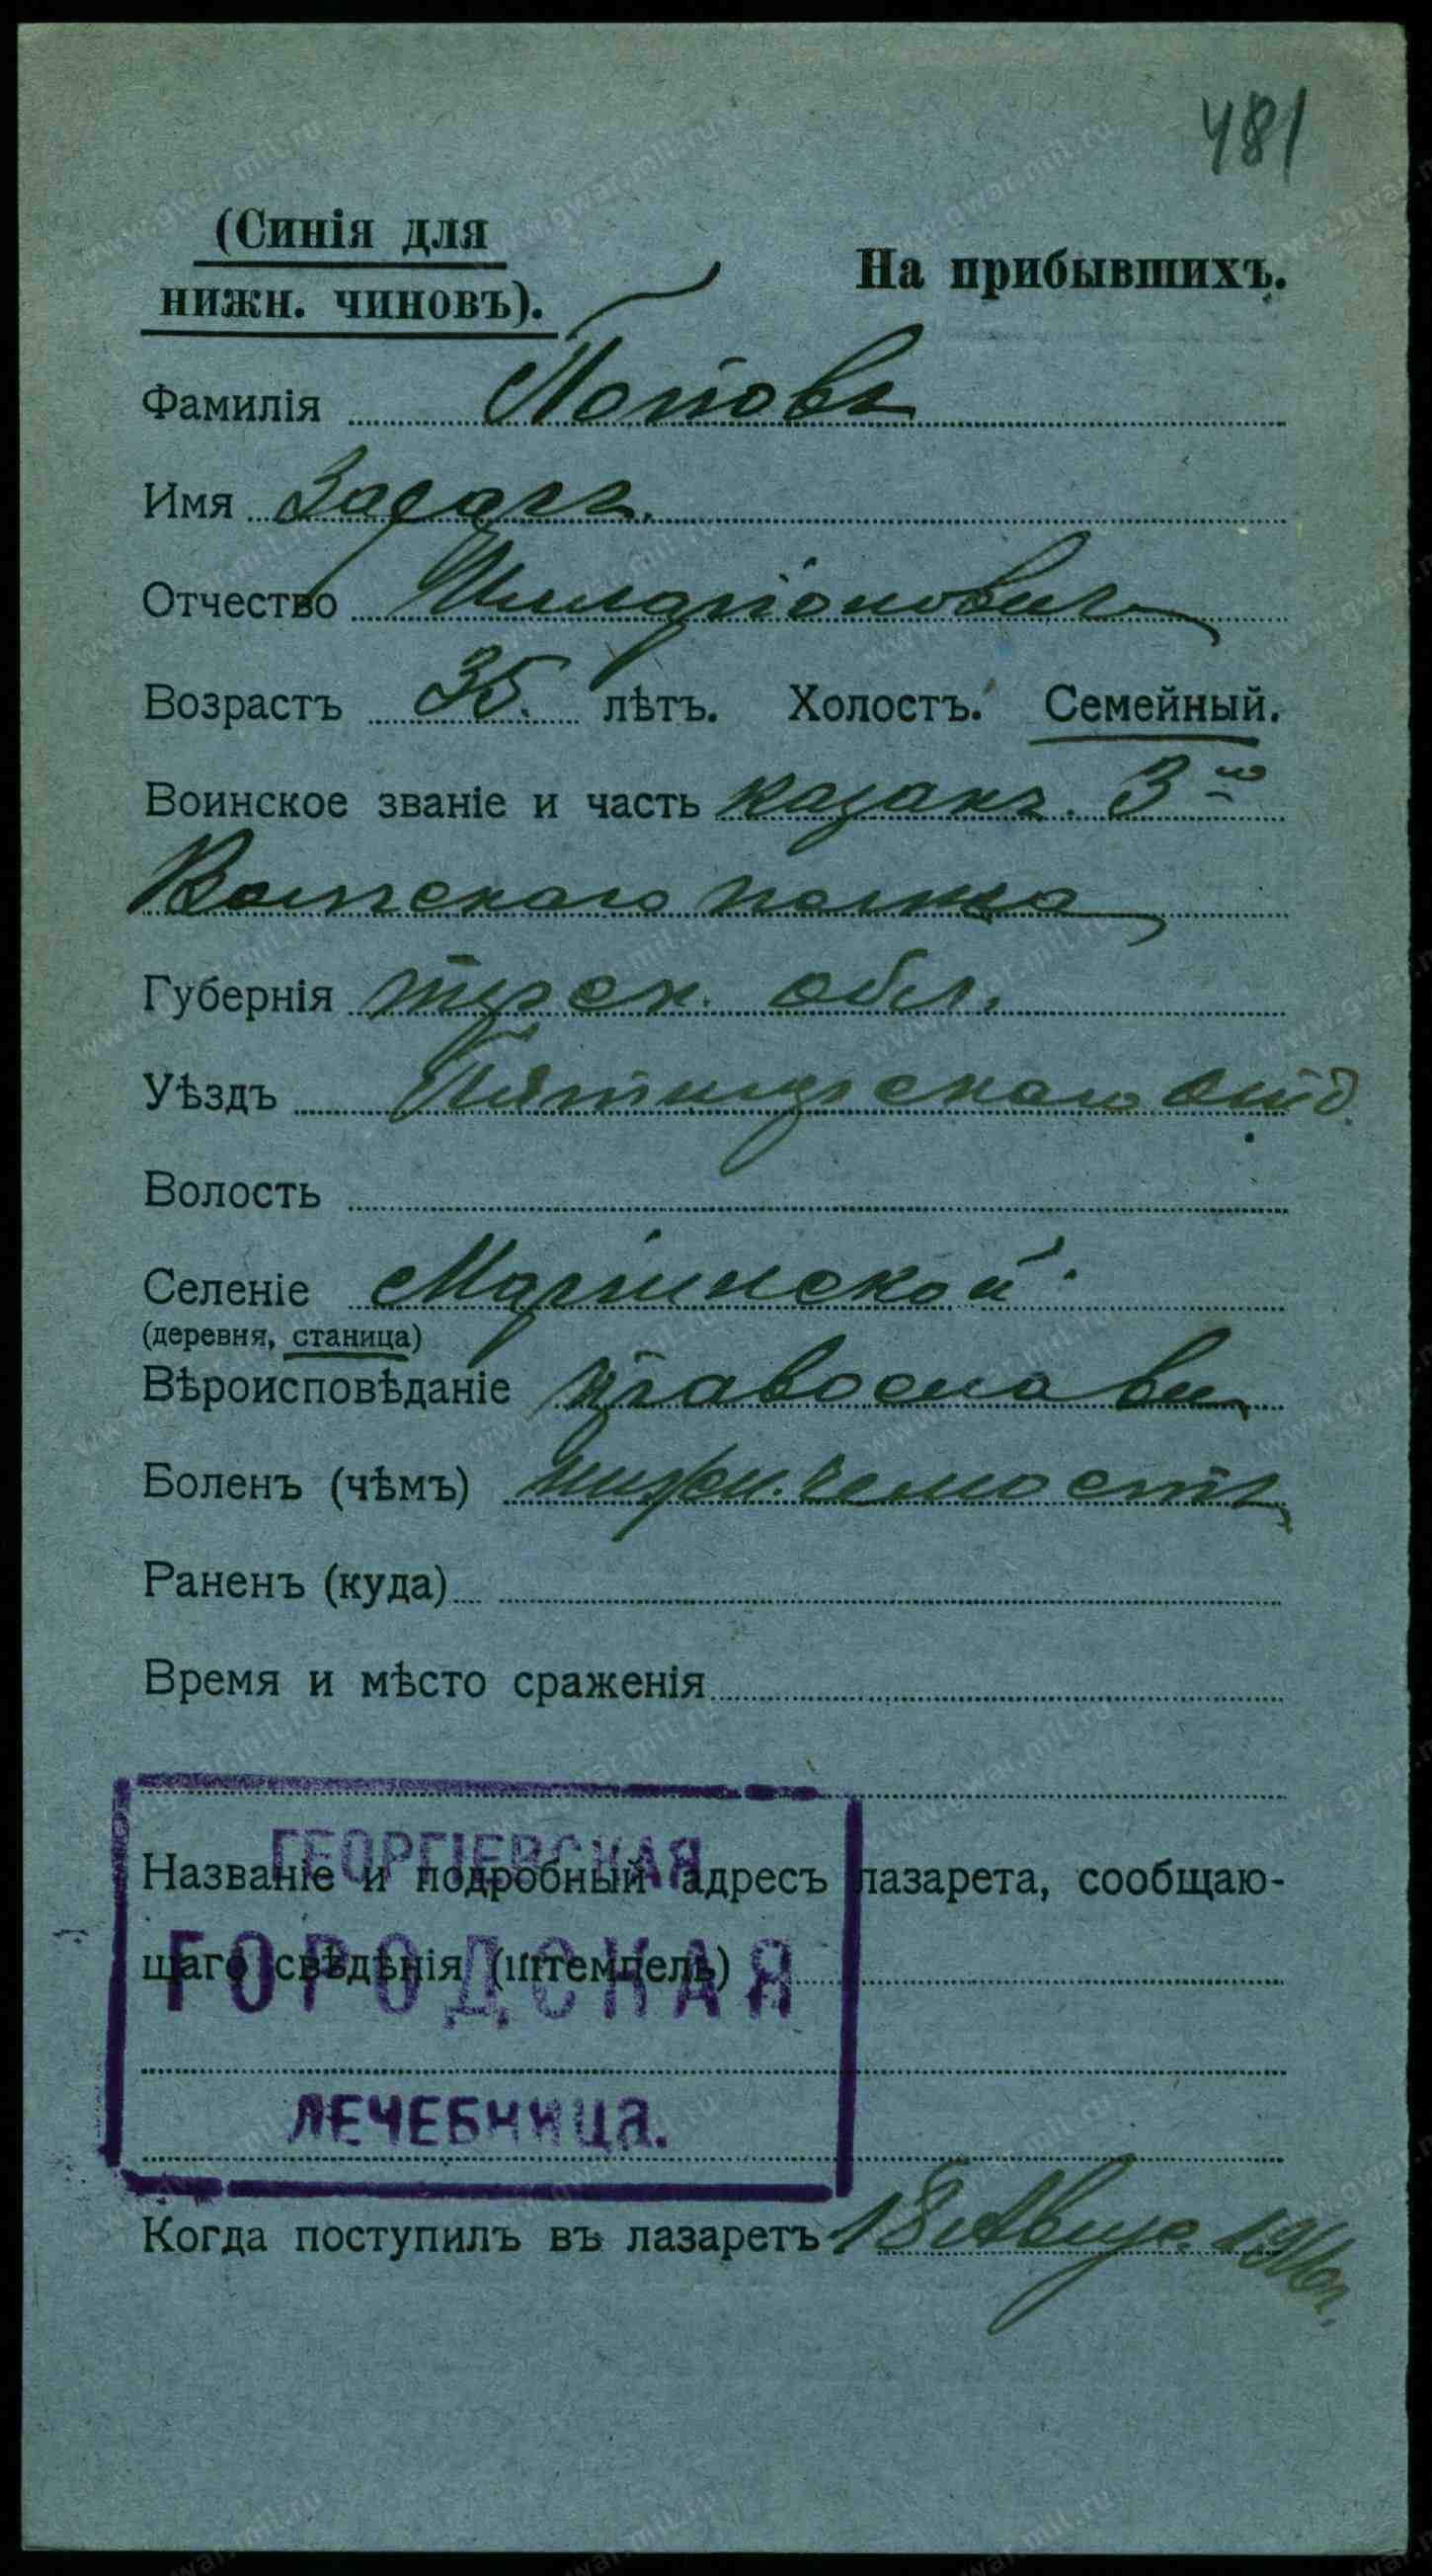 481
(Синія для
нижн. чиновъ).
На прибывшихъ.
Фамилія Поповъ
Имя Захаръ.
Отчество Илларіоновичъ
Возрастъ 35. лѣтъ. Холостъ. Семейный.
Воинское званіе и часть казакъ. 3го
Волгскаго полка
Губернія терск. обл.
Уѣздъ Пятигорскаго отд.
Волость
Селеніе Маріинской
(деревня, станица)
Вѣроисповѣданіе православн
Боленъ (чѣмъ) нижн. челюсть
Раненъ (куда)
Время и мѣсто сраженія
Названіе и подробный адресъ лазарета, сообщаю-
щаго свѣдѣнія (штемпель)
ГЕОРГІЕВСКАЯ
ГОРОДСКАЯ
ЛЕЧЕБНИЦА.
Когда поступилъ въ лазаретъ 18 Авгус. 1916г.
www.gwar.mil.ru